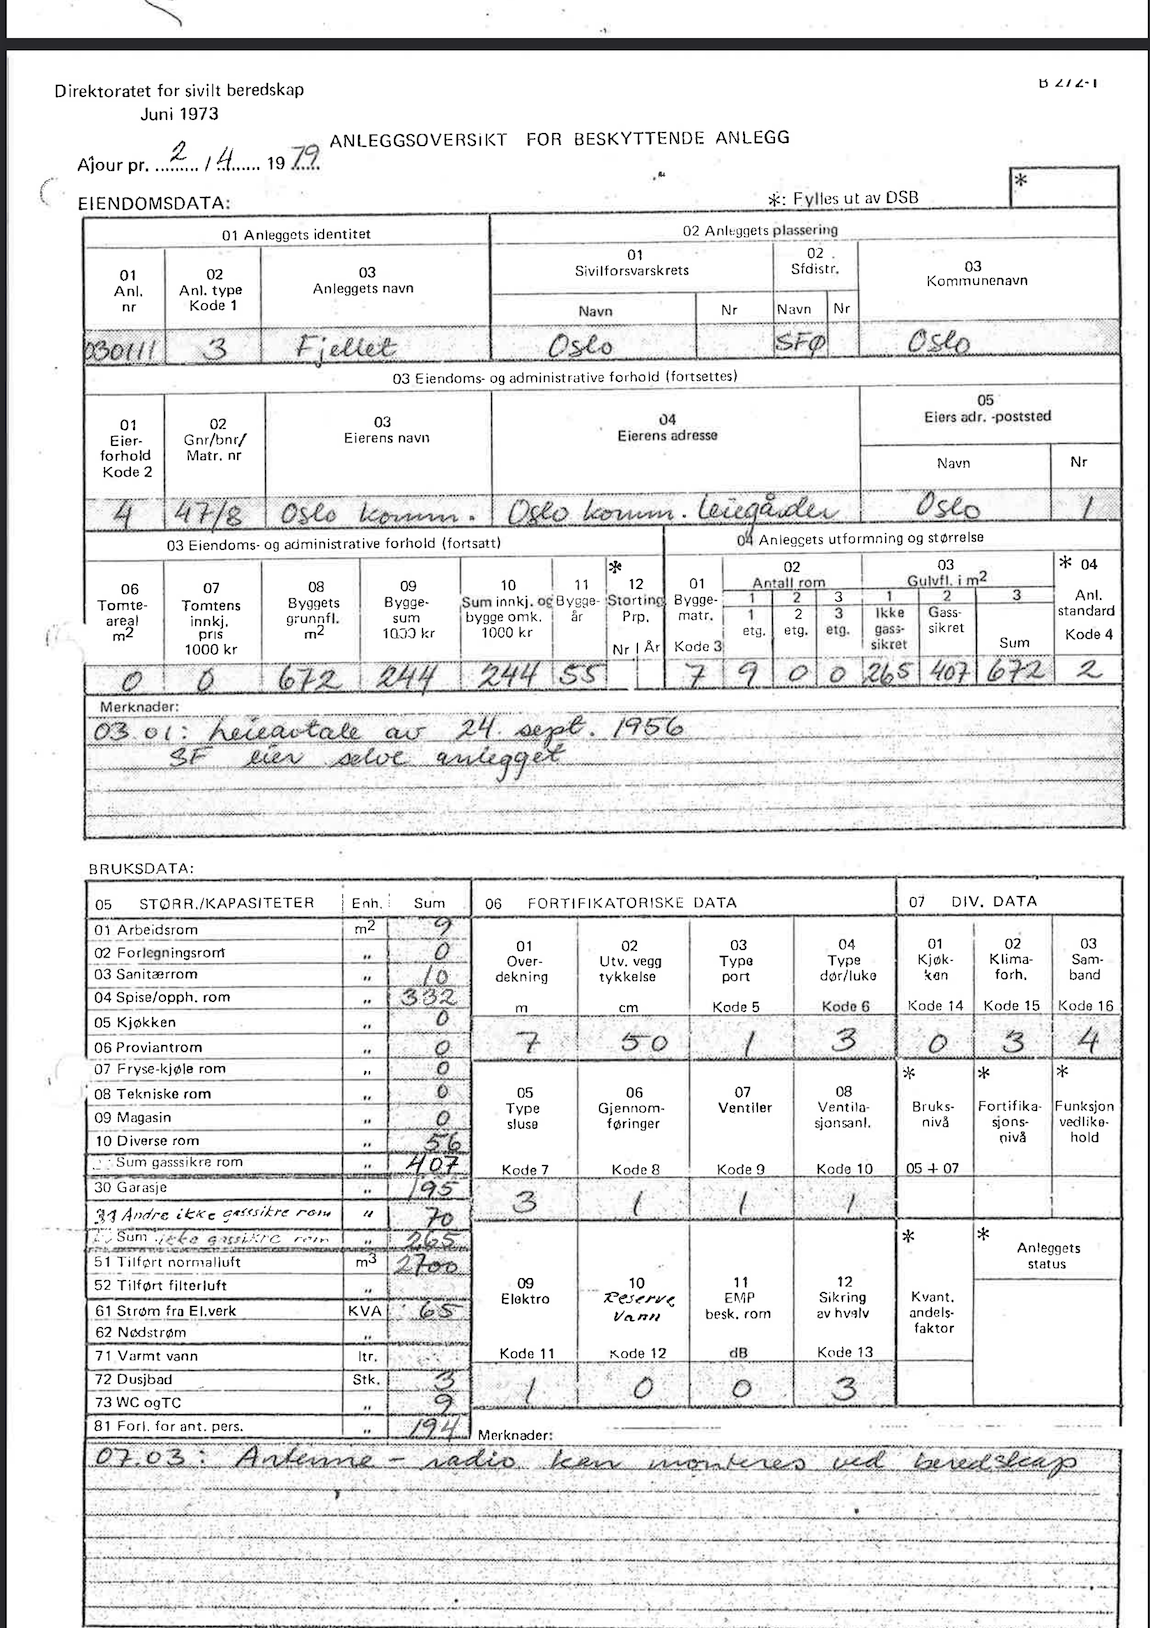 Direktoratet for sivilt beredskap
Juni 1973
B 272-1
ANLEGGSOVERSIKT FOR BESKYTTENDE ANLEGG
Ajour pr. 2 / 4 1979
EIENDOMSDATA:
*: Fylles ut av DSB
*
01 Anleggets identitet
02 Anleggets plassering
01 Anl. nr
02 Anl. type Kode 1
03 Anleggets navn
01 Sivilforsvarskrets
02 Sfdistr.
03 Kommunenavn
Navn Nr Navn Nr
030111 3 Fjellet Oslo SFØ Oslo
03 Eiendoms- og administrative forhold (fortsettes)
01 Eier-forhold Kode 2
02 Gnr/bnr/ Matr. nr
03 Eierens navn
04 Eierens adresse
05 Eiers adr. -poststed
Navn Nr
4 47/8 Oslo komm. Oslo komm. leiegårder Oslo 1
03 Eiendoms- og administrative forhold (fortsatt)
04 Anleggets utformning og størrelse
06 Tomte-areal m2
07 Tomtens innkj. pris 1000 kr
08 Byggets grunnfl. m2
09 Bygge-sum 1000 kr
10 Sum innkj. og bygge omk. 1000 kr
11 Bygge-år
* 12 Storting Prp. Nr År
01 Bygge-matr. Kode 3
02 Antall rom
1 2 3
1 etg. 2 etg. 3 etg.
03 Gulvfl. i m2
1 Ikke gass-sikret
2 Gass-sikret
3 Sum
* 04 Anl. standard Kode 4
0 0 672 244 244 55 7 9 0 0 265 407 672 2
Merknader:
03.01: Leieavtale av 24. sept. 1956
SF eier selve anlegget
BRUKSDATA:
05 STØRR./KAPASITETER Enh. Sum
01 Arbeidsrom m2 9
02 Forlegningsrom " 0
03 Sanitærrom " 10
04 Spise/opph. rom " 332
05 Kjøkken " 0
06 Proviantrom " 0
07 Fryse-kjøle rom " 0
08 Tekniske rom " 0
09 Magasin " 0
10 Diverse rom " 56
Sum gasssikre rom " 407
30 Garasje " 195
31 Andre ikke gasssikre rom " 70
Sum ikke gassikre rom " 265
51 Tilført normalluft m3 2700
52 Tilført filterluft "
61 Strøm fra El.verk KVA 65
62 Nødstrøm "
71 Varmt vann ltr.
72 Dusjbad Stk. 3
73 WC ogTC " 9
81 Forl. for ant. pers. " 194
06 FORTIFIKATORISKE DATA
07 DIV. DATA
01 Over-dekning m
02 Utv. vegg tykkelse cm
03 Type port Kode 5
04 Type dør/luke Kode 6
01 Kjøk-ken Kode 14
02 Klima-forh. Kode 15
03 Sam-band Kode 16
7 50 1 3 0 3 4
05 Type sluse Kode 7
06 Gjennom-føringer Kode 8
07 Ventiler Kode 9
08 Ventila-sjonsanl. Kode 10
* Bruks-nivå 05 + 07
* Fortifika-sjons-nivå
* Funksjon vedlike-hold
3 1 1 1
09 Elektro Kode 11
10 Reserve vann Kode 12
11 EMP besk. rom dB
12 Sikring av hvelv Kode 13
* Kvant. andels-faktor
* Anleggets status
1 0 0 3
Merknader:
07.03: Antenne - radio kan monteres ved beredskap